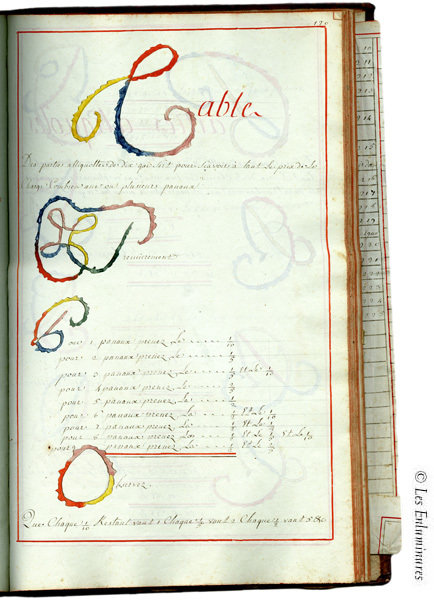 Table
Des parties aliquottes de dix qui sert pour sçavoir à tant le prix de la
Charge Combien un ou plusieurs panaux
Premierement
Pour 1 panaux prenez Le ..... 1/10
pour 2 panaux prenez Le ..... 1/5
pour 3 panaux prenez Le ..... 1/5 Et Le 1/10
pour 4 panaux prenez Le
pour 5 panaux prenez Le ..... 1/2
pour 6 panaux prenez Le ..... 1/2 Et Le 1/10
pour 7 panaux prenez La ..... 1/2 Et Le 1/5
pour 8 panaux prenez Les ..... 1/2 Et Le 1/5 Et Le 1/10
pour 9 panaux prenez La ..... Et Le
Observez
Que Chaque 1/10 Restant vaut 1 Chaque 1/5 vaut 2 Chaque 1/2 vaut 5 &c
© Les Enluminures